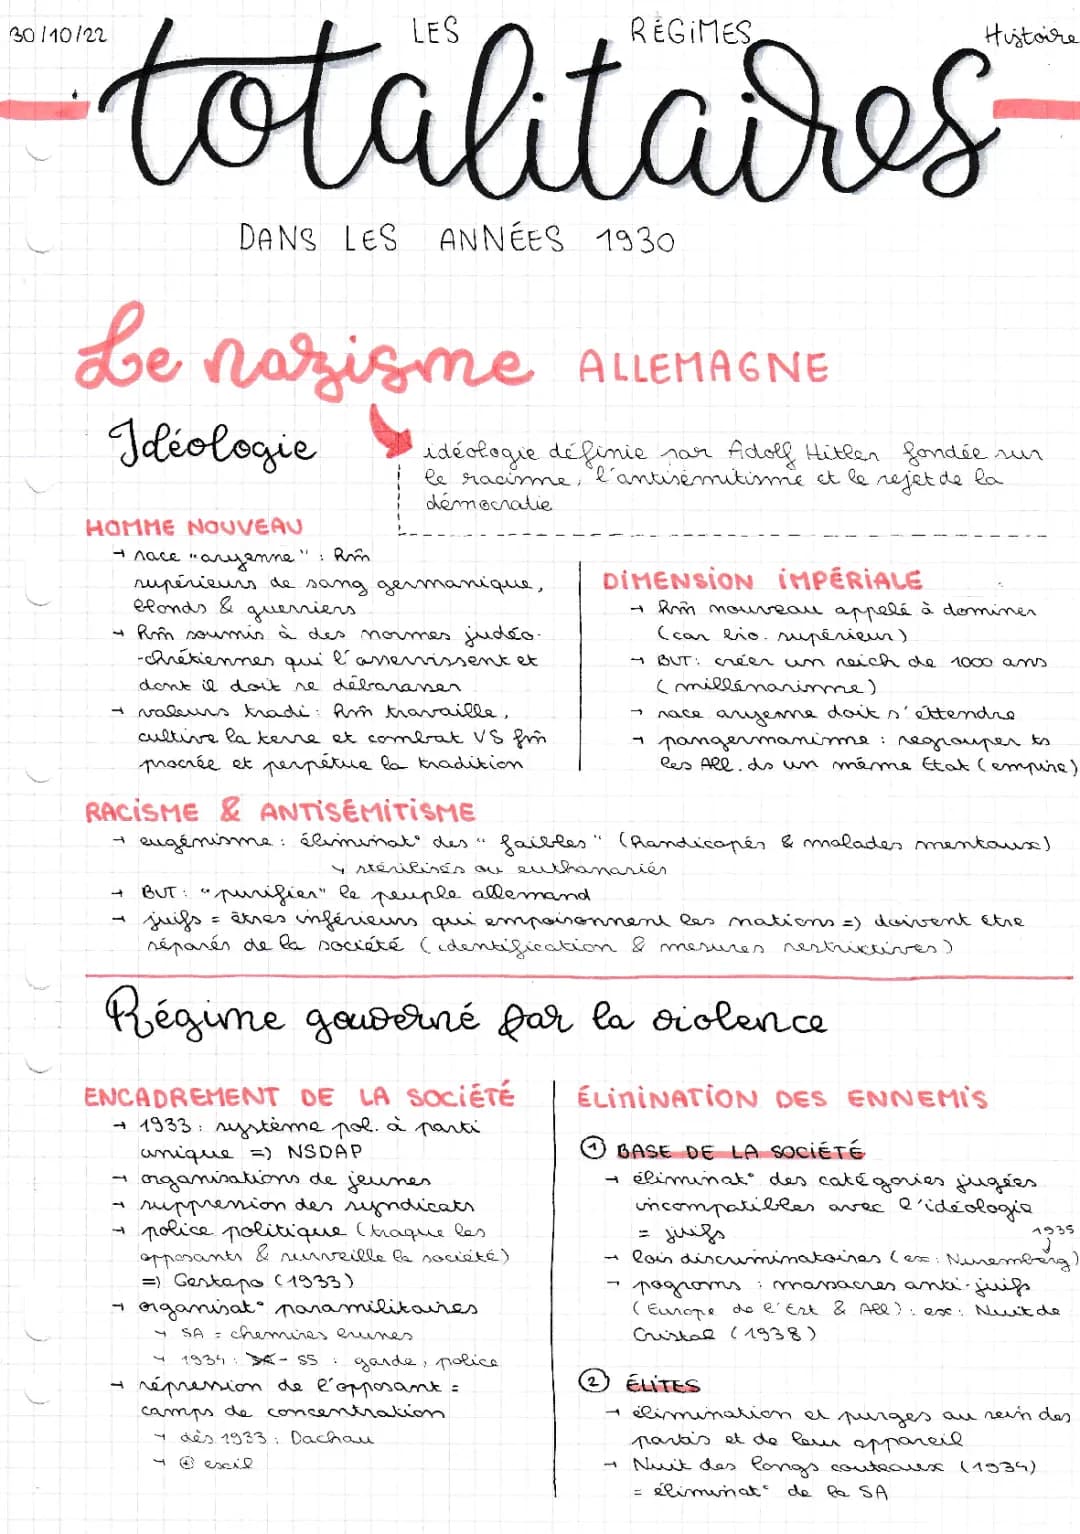 30/10/22
LES RÉGIMES
Histoire
totalitaires
DANS LES ANNÉES 1930
Le nazisme ALLEMAGNE
Idéologie
idéologie définie par Adolf Hitler fondée sur
le racisme, l'antisémitisme et le rejet de la
démocratie
HOMME NOUVEAU
→ race "aryenne" : Hm̄
supérieurs de sang germanique,
blonds & guerriers
→ Hm̄ soumis à des normes judéo-
-chrétiennes qui l'asservissent et
dont il doit se débarasser
→ valeurs tradi : Hm̄ travaille,
cultive la terre et combat VS fm̄
procrée et perpétue la tradition
DIMENSION IMPÉRIALE
→ Hm̄ nouveau appelé à dominer
(car bio. supérieur)
→ BUT : créer un reich de 1000 ans
(millénarisme)
→ race aryenne doit s'étendre
→ pangermanisme : regrouper ts
les All. ds un même Etat (empire)
RACISME & ANTISÉMITISME
→ eugénisme : éliminat° des "faibles" (handicapés & malades mentaux)
↳ stérilisés ou euthanasiés
→ BUT : "purifier" le peuple allemand
→ juifs = êtres inférieurs qui empoisonnent les nations => doivent être
séparés de la société (identification & mesures restrictives)
Régime gouverné par la violence
ENCADREMENT DE LA SOCIÉTÉ
→ 1933 : système pol. à parti
unique => NSDAP
→ organisations de jeunes
→ suppression des syndicats
→ police politique (traque les
opposants & surveille la société)
=> Gestapo (1933)
→ organisat° paramilitaires
→ SA = chemises brunes
→ 1934 : SA - SS : garde, police
→ répression de l'opposant =
camps de concentration
→ dès 1933 : Dachau
→ ⊕ exil
ÉLIMINATION DES ENNEMIS
① BASE DE LA SOCIÉTÉ
→ éliminat° des catégories jugées
incompatibles avec l'idéologie
= juifs
1935
→ lois discriminatoires (ex : Nuremberg)
→ pogroms : massacres anti-juifs
(Europe de l'Est & All) : ex : Nuit de
Cristal (1938)
② ÉLITES
→ élimination et purges au sein des
partis et de leur appareil
→ Nuit des longs couteaux (1934)
= éliminat° de la SA